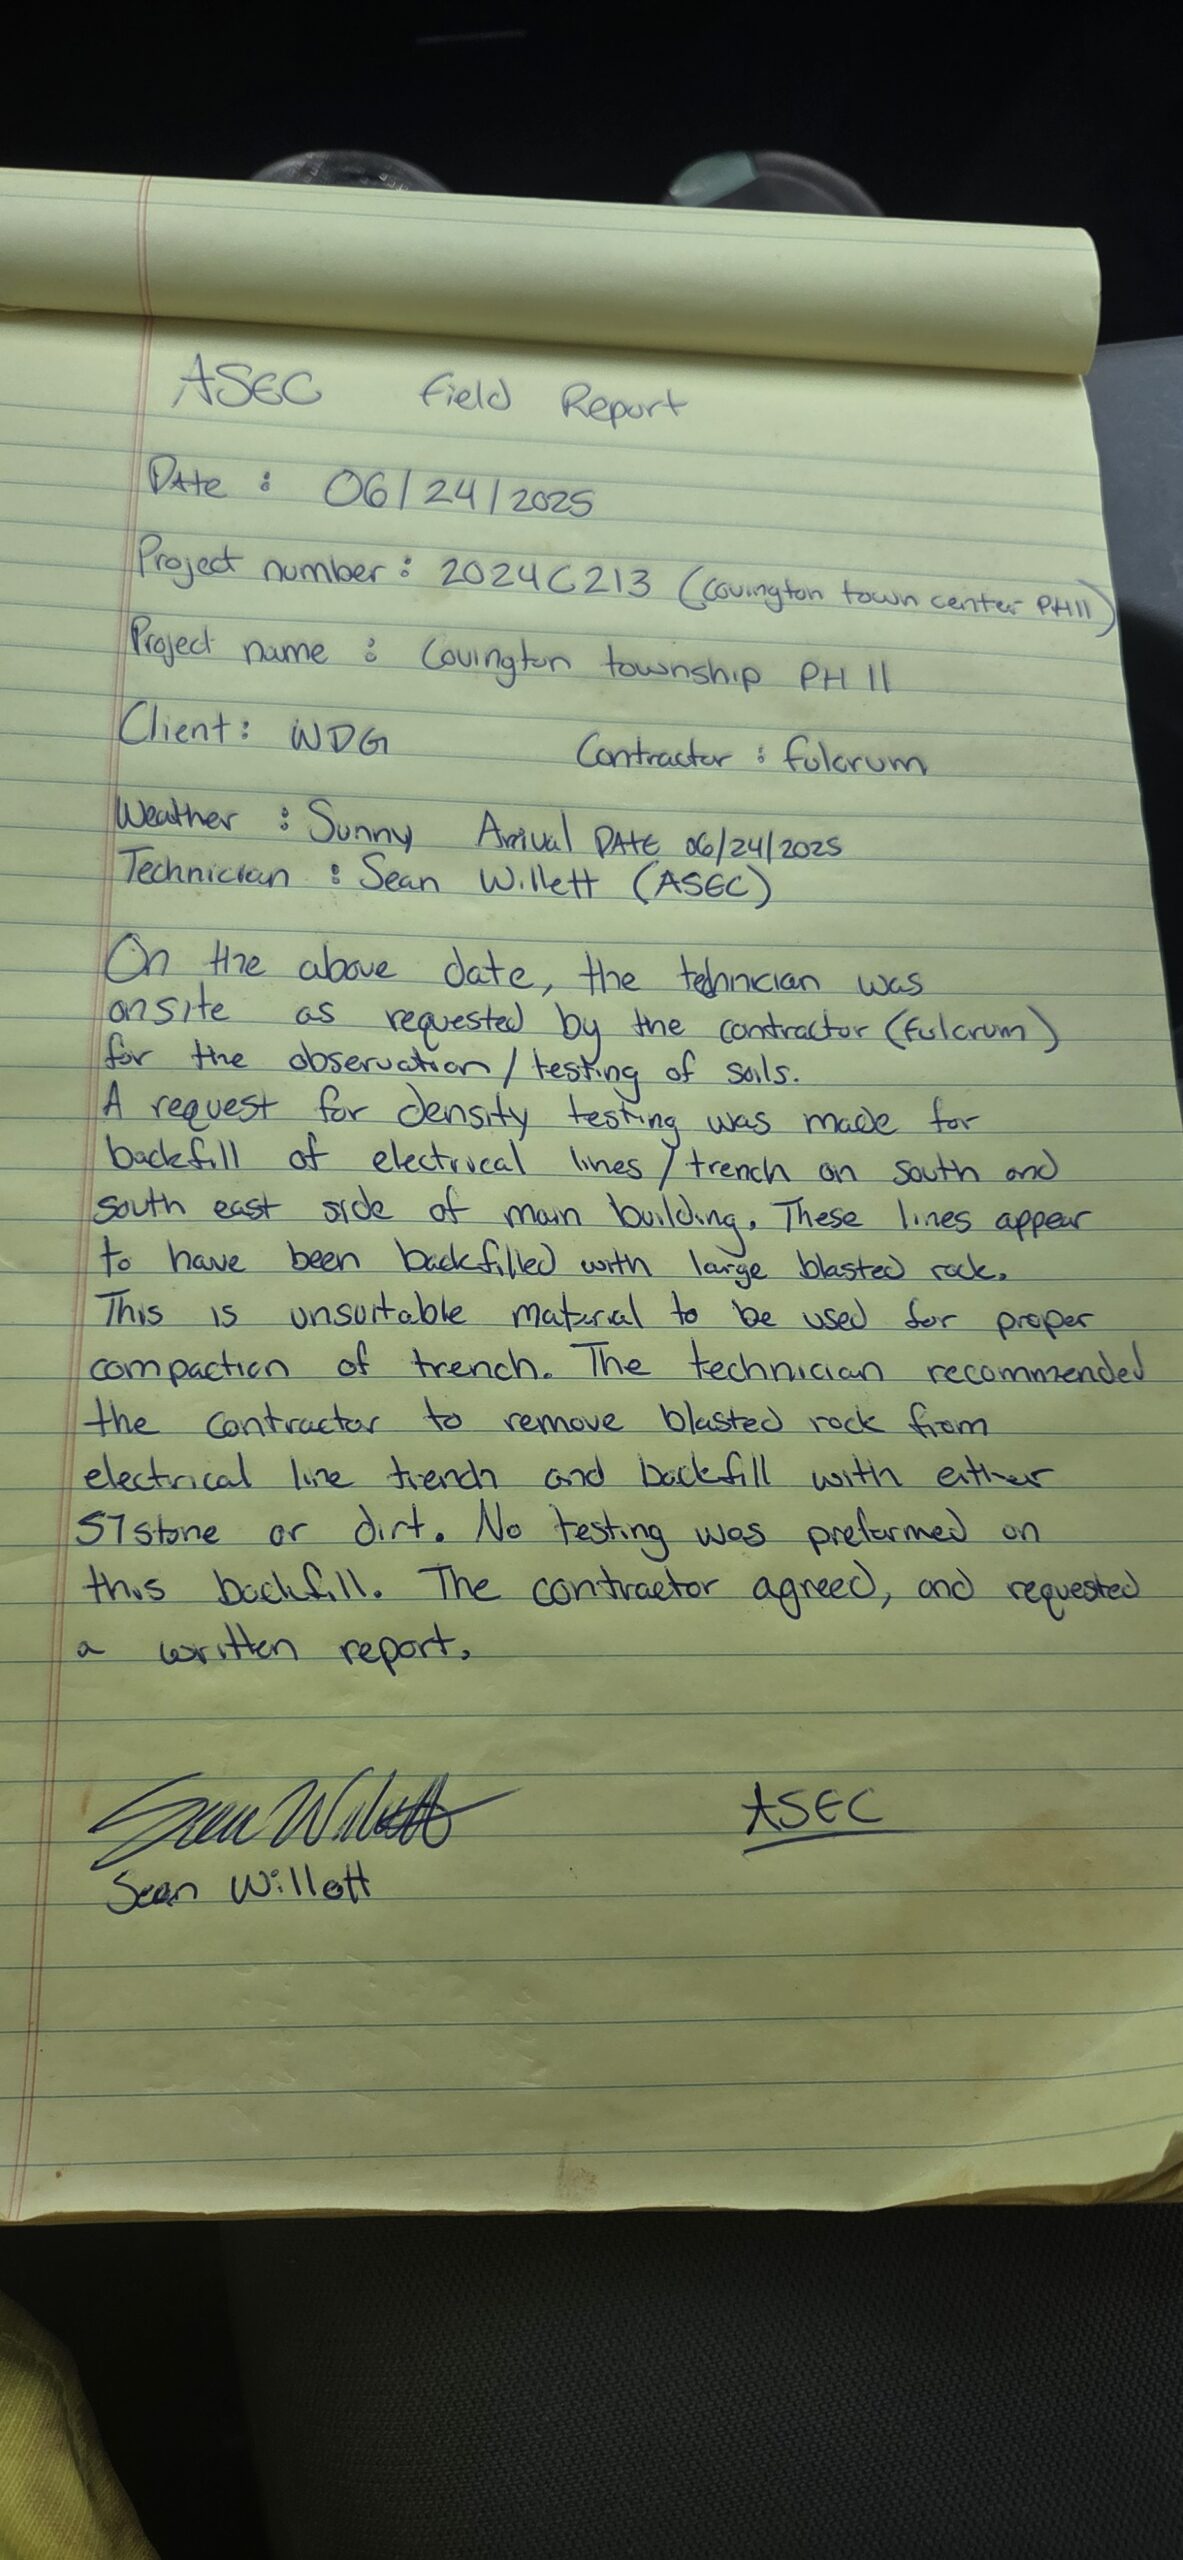 ASEC Field Report
Date : 06/24/2025
Project number : 2024C213 (Covington town center PH11)
Project name : Covington township PH 11
Client : WDG Contractor : fulcrum
Weather : Sunny Arrival DATE 06/24/2025
Technician : Sean Willett (ASEC)
On the above date, the tehnician was
onsite as requested by the contractor (fulcrum)
for the observation/testing of soils.
A request for density testing was made for
backfill of electrical lines/trench on south and
south east side of main building. These lines appear
to have been backfilled with large blasted rock.
This is unsuitable material to be used for proper
compaction of trench. The technician recommended
the contractor to remove blasted rock from
electrical line trench and backfill with either
57 stone or dirt. No testing was preformed on
this backfill. The contractor agreed, and requested
a written report.
Sean Willett ASEC
Sean Willett